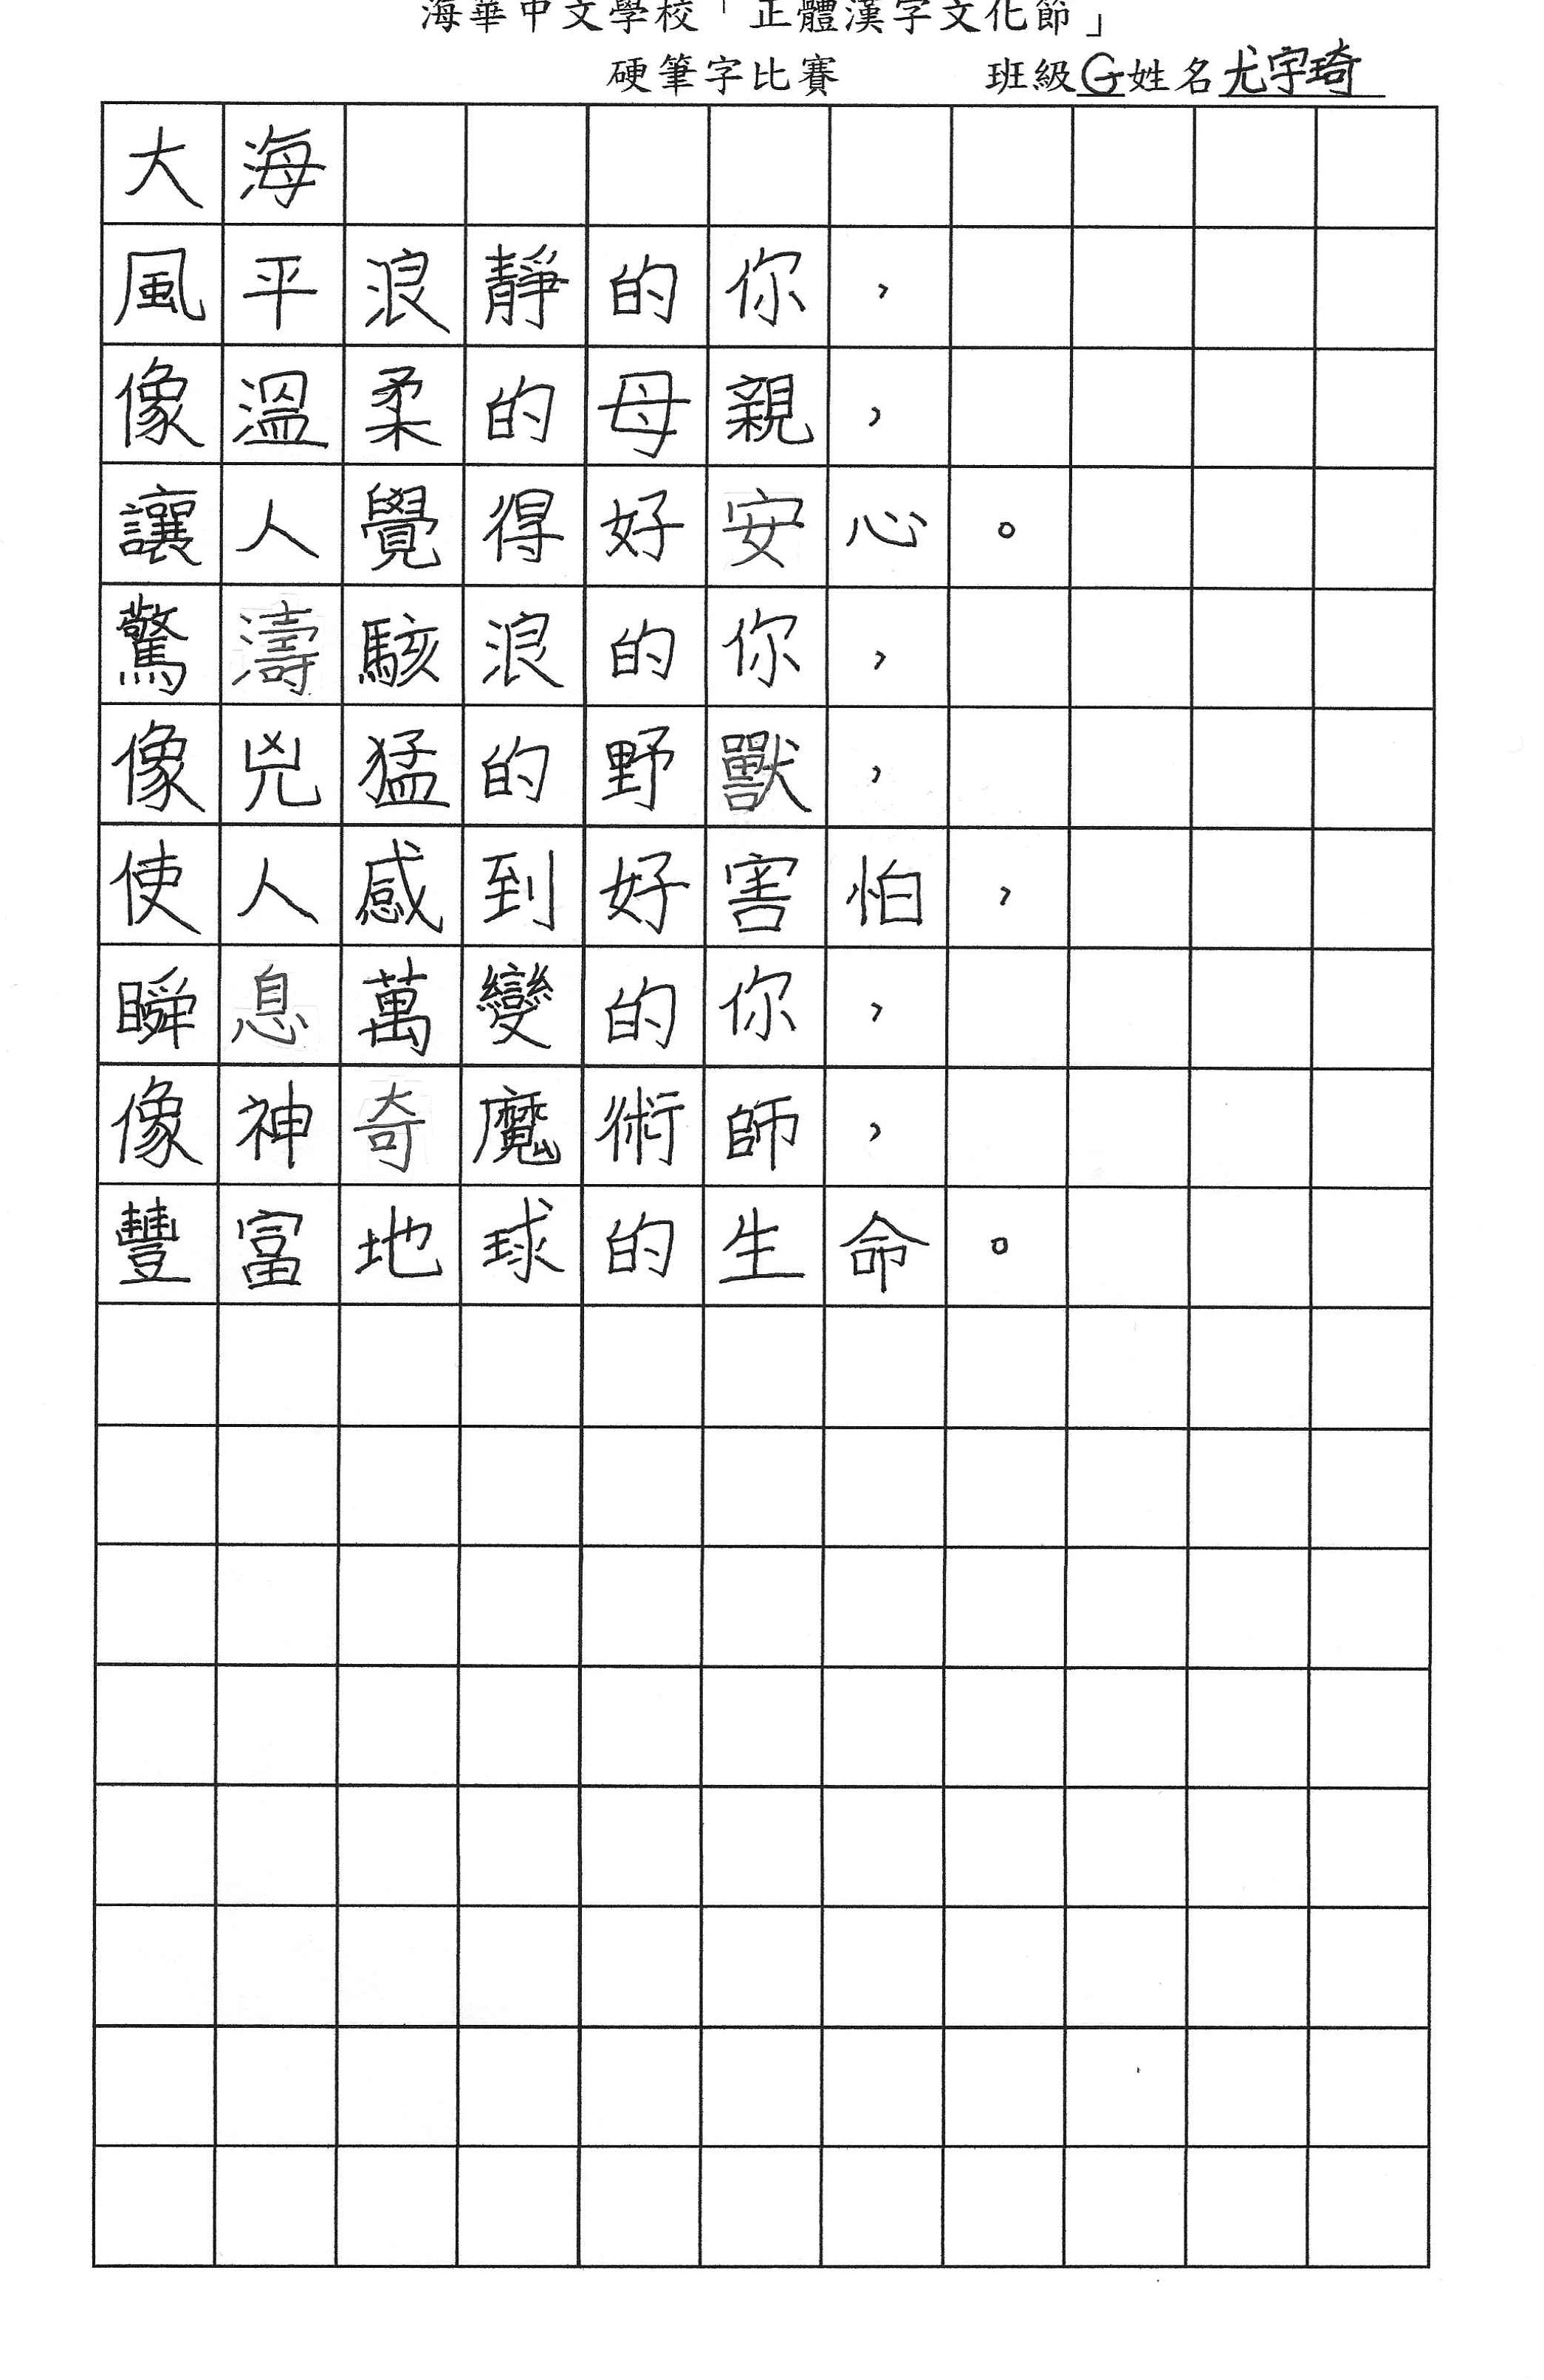 海華中文學校「正體漢字文化節」
硬筆字比賽 班級G姓名尤宇琦
大海
風平浪靜的你，
像溫柔的母親，
讓人覺得好安心。
驚濤駭浪的你，
像兇猛的野獸，
使人感到好害怕，
瞬息萬變的你，
像神奇魔術師，
豐富地球的生命。